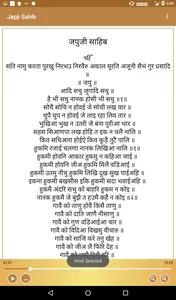 Japji Sahib
जपुजी साहिब
सति नामु करता पुरखु निरभउ निरवैरु अकाल मूरति अजूनी सैभं गुर प्रसादि
॥
॥ जपु ॥
आदि सचु जुगादि सचु ॥
है भी सचु नानक होसी भी सचु ॥१॥
सोचै सोचि न होवई जे सोची लख वार ॥
चुपै चुप न होवई जे लाइ रहा लिव तार ॥
भुखिआ भुख न उतरी जे बंना पुरीआ भार ॥
सहस सिआणपा लख होहि त इक न चलै नालि ॥
किव सचिआरा होईऐ किव कूड़ै तुटै पालि ॥
हुकमि रजाई चलणा नानक लिखिआ नालि ॥१॥
हुकमी होवनि आकार हुकमु न कहिआ जाई ॥
हुकमी होवनि जीअ हुकमि मिलै वडिआई ॥
हुकमी उतमु नीचु हुकमि लिखि दुख सुख पाईअहि ॥
इकना हुकमी बखसीस इकि हुकमी सदा भवाईअहि ॥
हुकमै अंदरि सभु को बाहरि हुकम न कोइ ॥
नानक हुकमै जे बुझै त हउमै कहै न कोइ ॥२॥
गावै को ताणु होवै किसै ताणु ॥
गावै को दाति जाणै नीसाणु ॥
गावै को गुण वडिआईआ चार ॥
गावै को विदिआ विखमु वीचारु ॥
गावै को साजि करे तनु खेह ॥
गावै को जीअ लै फिरि देह ॥
Hindi Selected